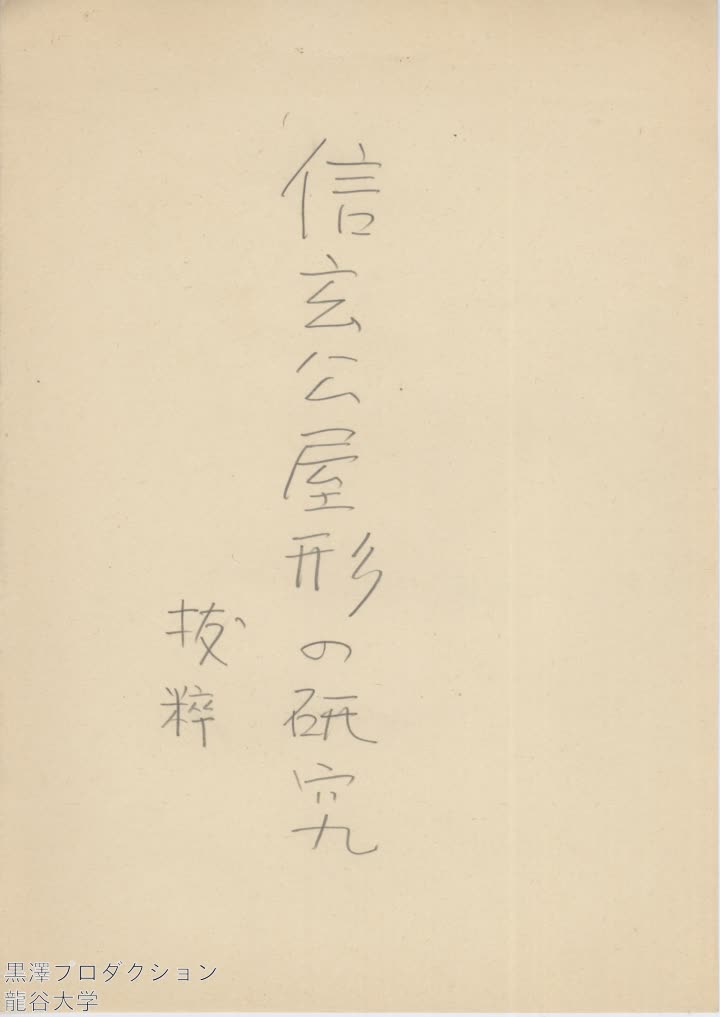 信玄公屋形の研究
抜粋
黒澤プロダクション
龍谷大学